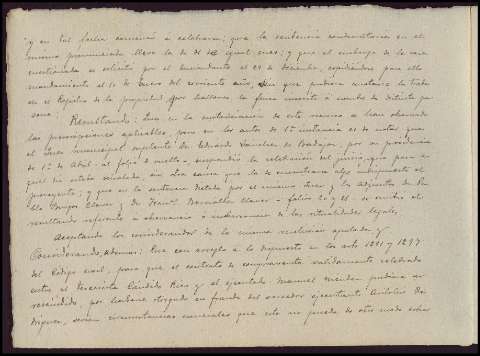 y en tal fecha comenzó á celebrarse; que la sentencia condenatoria en el
mismo pronunciada lleva la de del igual mes; y que el embargo de la casa
cuestionada se solicitó por el demandante el 29 de diciembre, expidiéndose para ello
mandamiento el de Enero del corriente año, sin que pudiera anotarse la traba
en el Registro de la propiedad por hallarse la finca inscrita á nombre de distinta per
sona:
Resultando: Que en la sustanciación de este recurso se han observado
las prescripciones aplicables, pero en los autos de 1ª instancia es de notar que
el Juez municipal suplente de Eduardo Sánchez de Badajoz, por su providencia
de 1º de Abril - al folio 2 vuelto - suspendió la celebración del juicio, que para a
quel día estaba señalado, sin otra causa que la de encontrarse algo indispuesto el
proveyente; y que en la sentencia dictada por el mismo Juez y los adjuntos D. Pa
blo Burgos Claver y D. Franco. Claver - folios 20 y 21 - se omitió el
resultando referente á observancia ó inobservancia de las ritualidades legales,
Aceptando los considerandos de la misma resolución apelada y
Considerando, además: Que con arreglo á lo dispuesto en los arts 1291 y 1297
del Código civil, para que el contrato de compraventa válidamente celebrado
entre el tercerista Cándido Rico y el ejecutado Manuel pudiera ser
rescindido, por haberse otorgado en fraude del acreedor ejecutante Antolín Do
mínguez, serían circunstancias esenciales que este no pueda de otro modo cobrar